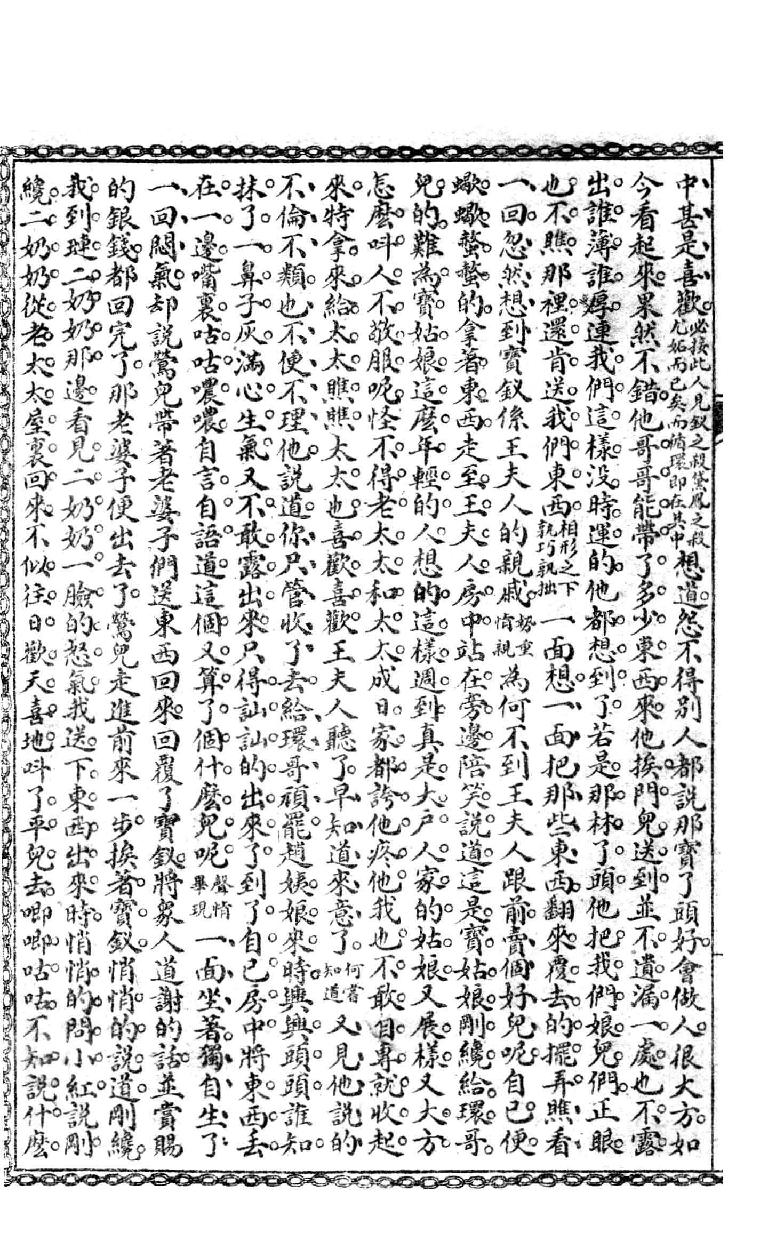 中甚是喜歡必按此人見釵之殺鶯鳳之殺尤妬而已矣而循環即在其中想道怨不得別人都說那寶丫頭好會做人很大方如
今看起來果然不錯他哥哥能帶了多少東西來他挨門兒送到並不遺漏一處也不露
出誰薄誰厚連我們這樣没時運的他都想到了若是那林丫頭他把我們娘兒們正眼
也不瞧那裡還肯送我們東西相形之下孰巧孰拙一面想一面把那些東西翻來覆去的擺弄瞧看
一回忽然想到寶釵係王夫人的親戚勢重情親為何不到王夫人跟前賣個好兒呢自已便
蠍蠍螫螫的拿著東西走至王夫人房中站在旁邊陪笑說道這是寶姑娘剛纔給環哥
兒的難為寶姑娘這麼年輕的人想的這樣週到真是大户人家的姑娘又展樣又大方
怎麼呌人不敬服呢怪不得老太太和太太成日家都誇他疼他我也不敢自專就收起
來特拿來給太太瞧瞧太太也喜歡喜歡王夫人聽了早知道來意了何嘗知道又見他說的
不倫不類也不便不理他說道你只管收了去給環哥頑罷趙姨娘來時興興頭頭誰知
抹了一鼻子灰滿心生氣又不敢露出來只得訕訕的出來了到了自已房中將東西丢
在一邊嘴裏咕咕噥噥自言自語道這個又算了個什麼兒呢聲情畢現一面坐著獨自生了
一回悶氣却說鶯兒帶著老婆子們送東西回來回覆了寶釵將眾人道謝的話並賞賜
的銀錢都回完了那老婆子便出去了鶯兒走進前來一步挨著寶釵悄悄的說道剛纔
我到璉二奶奶那邊看見二奶奶一臉的怒氣我送下東西出來時悄悄的問小紅說剛
纔二奶奶從老太太屋裏回來不似往日歡天喜地呌了平兒去唧唧咕咕不知說什麼